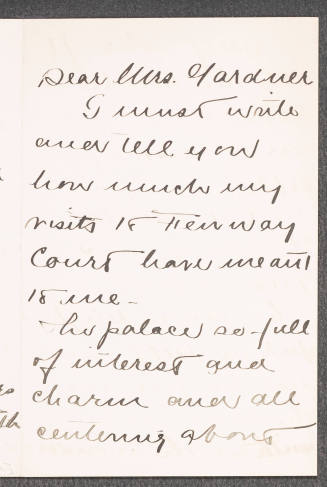 Dear Mrs. Gardner
I must write
and tell you
how much my
visits to Fenway
Court have meant
to me -
The palace so full
of interest and
charm and all
centering about